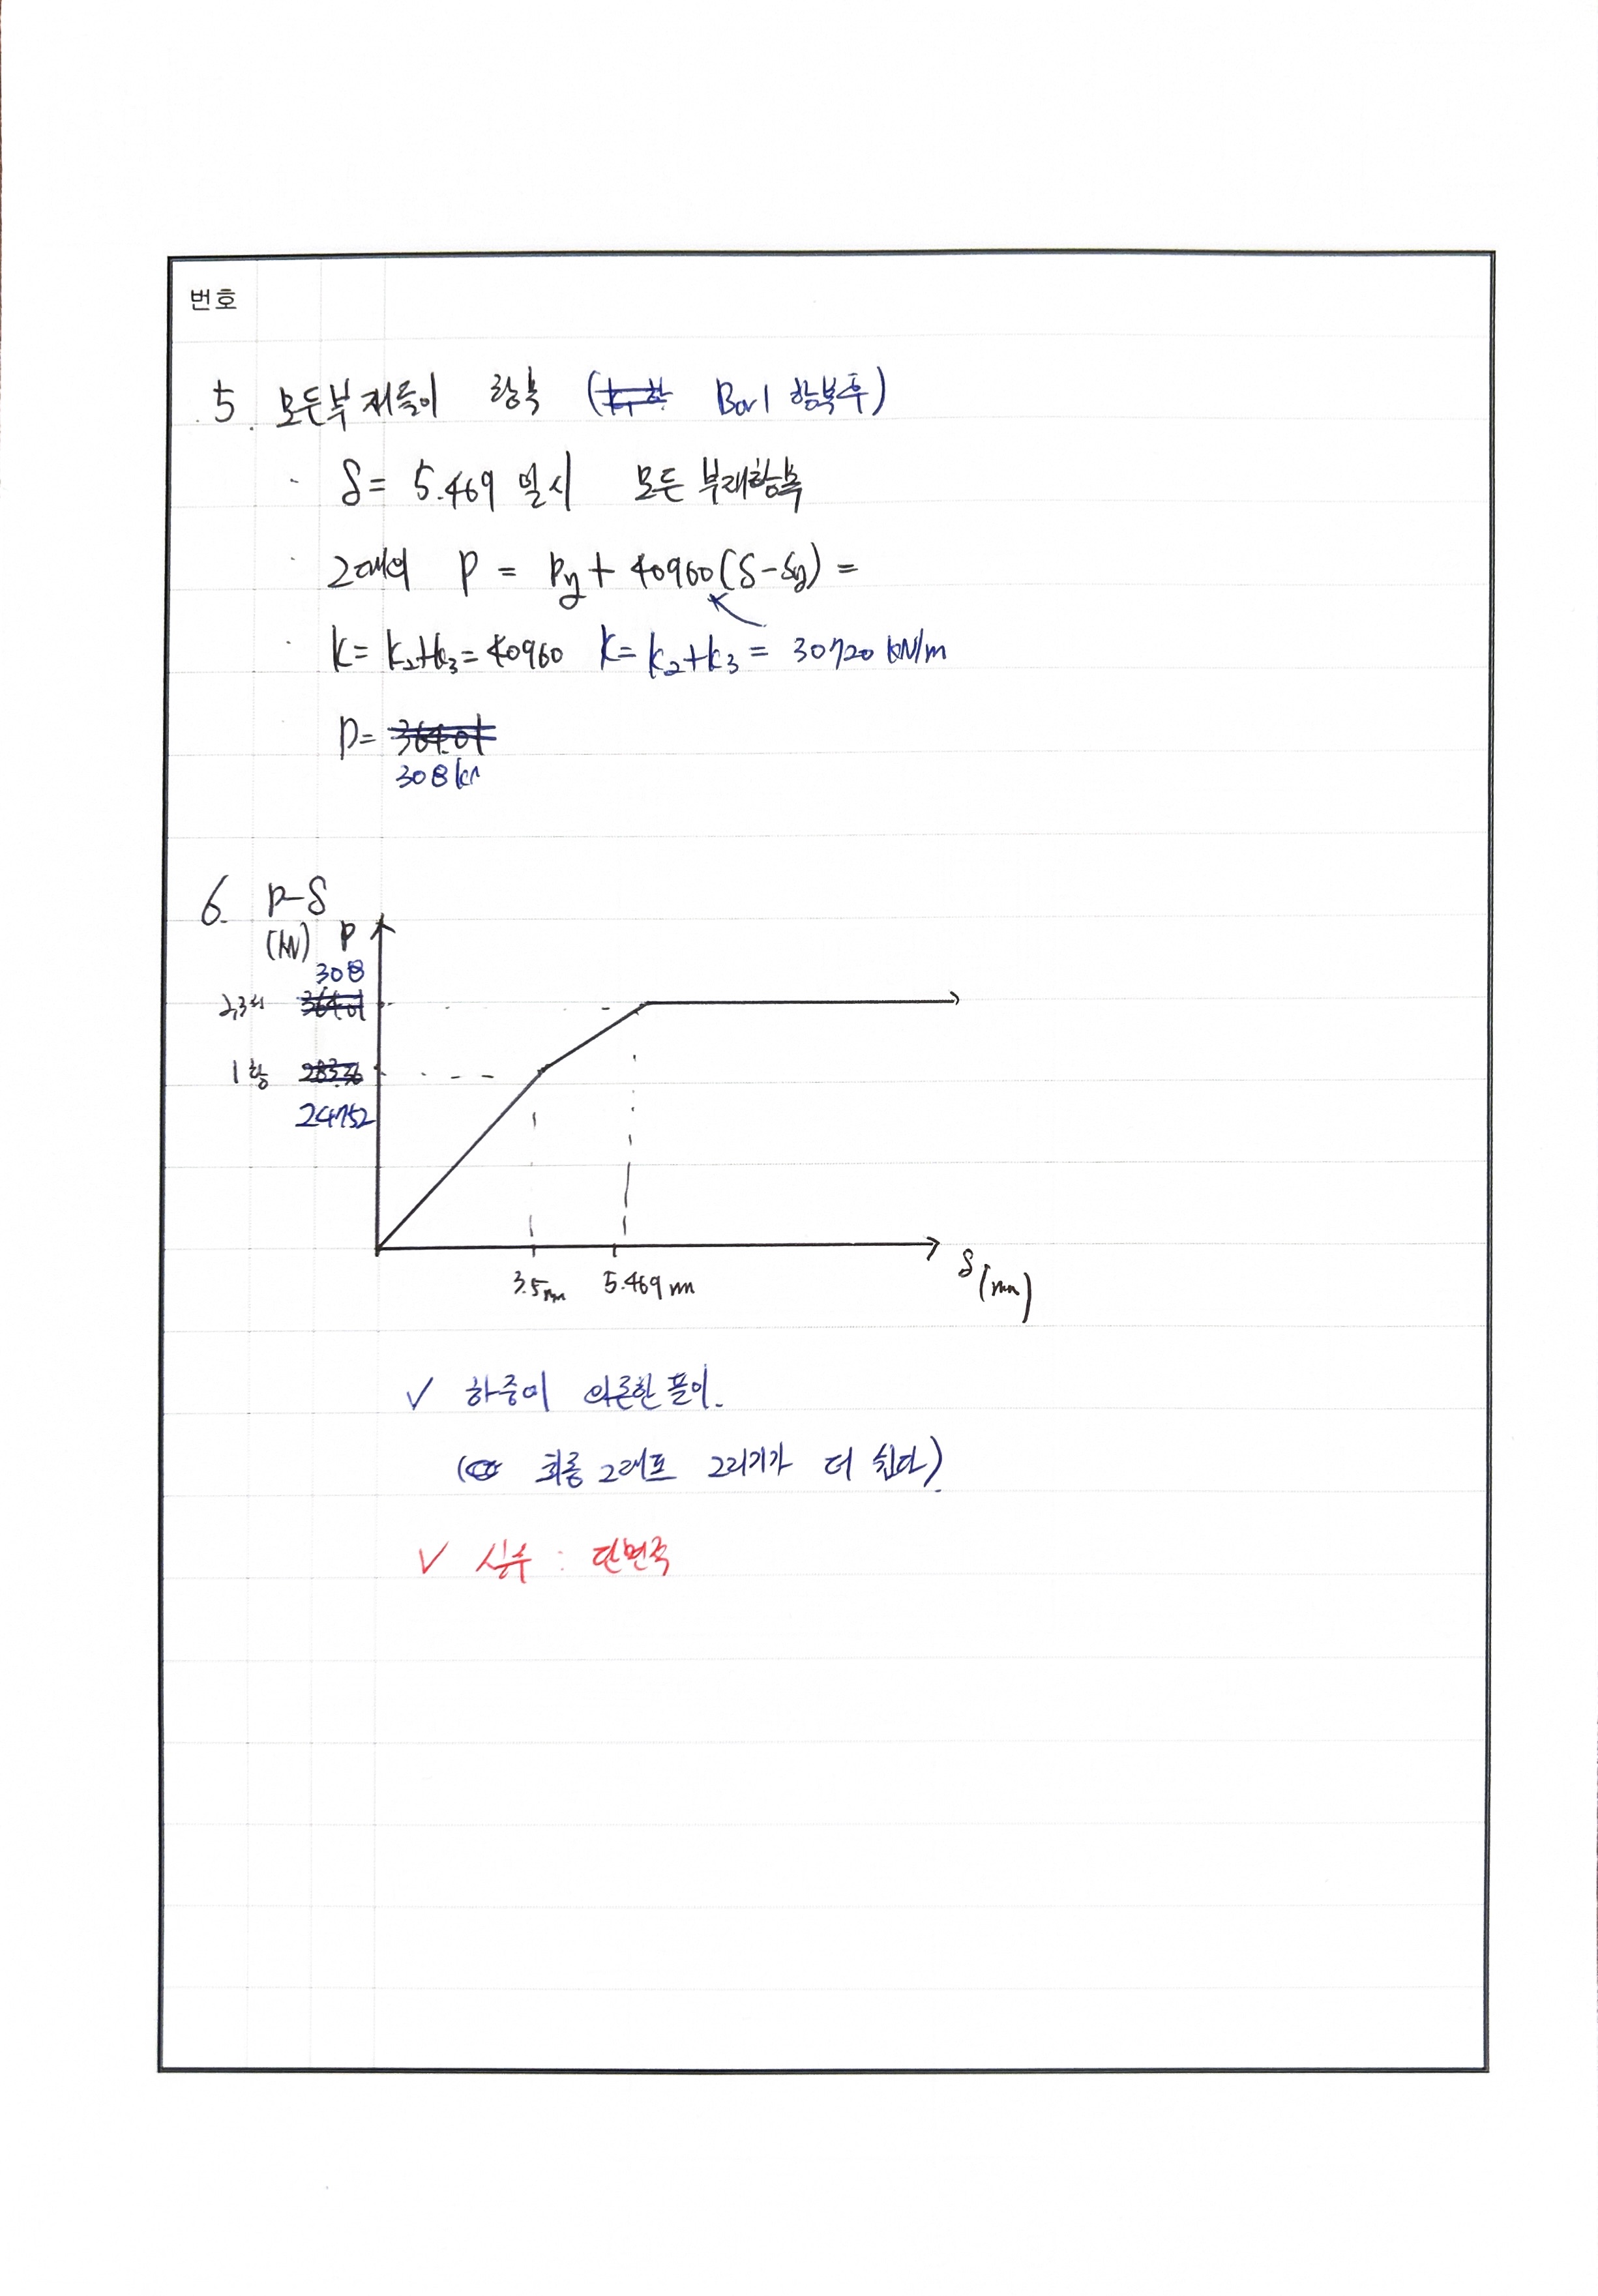 번호
5. 모든부재들이 항복 (Bar1 항복후)
· δ = 5.469 일시 모든 부재항복
· 2때의 P = Py + 40960(δ-δy) =
· k = k₂+k₃ = 40960 k = k₂+k₃ = 30720 kN/m
P = 364.01
308 kN
6. P-δ
(kN) P
308
2,3항 364.01
1항 283.36
247.52
3.5mm 5.469 mm
δ (mm)
✓ 하중에 의존한 풀이.
(최종 그래프 그리기가 더 쉽다).
✓ 실수 : 단면적